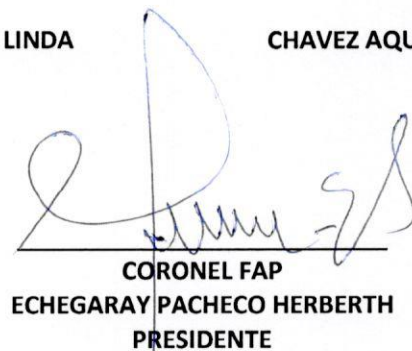 LINDA CHAVEZ AQU
CORONEL FAP
ECHEGARAY PACHECO HERBERTH
PRESIDENTE